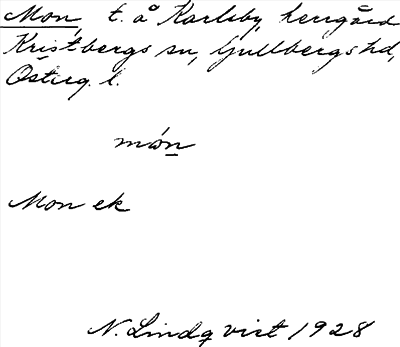 Mon, t. å Karleby, herrgård
Kristbergs sn, Gullbergs hd,
Österg. l.
món
Mon ek
N. Lindqvist 1928